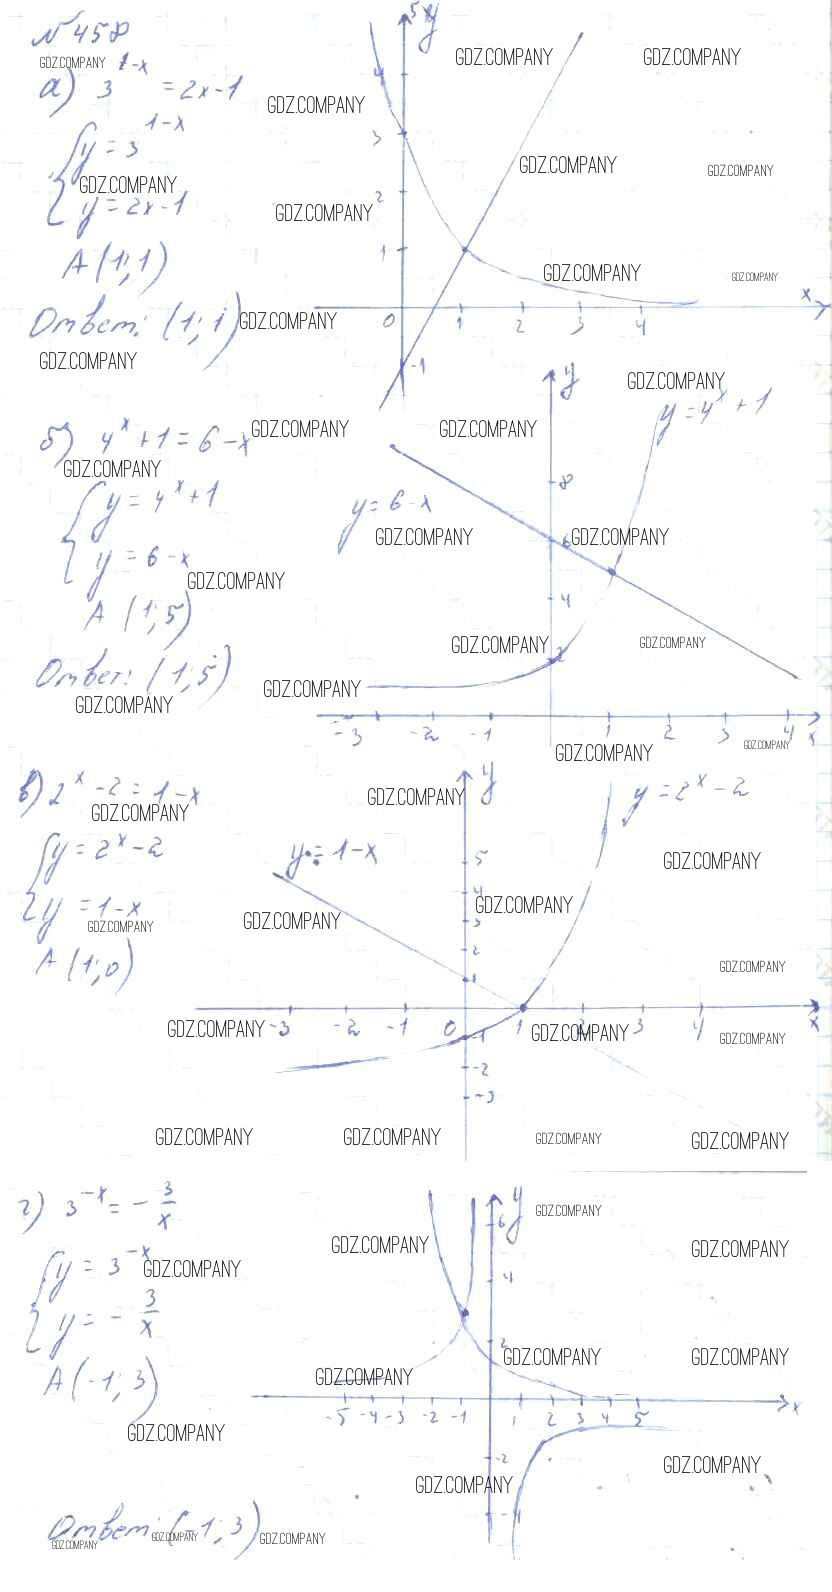 № 458
а) 3^{1-x} = 2x-1
{ y = 3^{1-x}
y = 2x-1
A (1; 1)
Ответ: (1; 1)
5 y
4
3
2
1
0 1 2 3 4 x
-1
б) 4^x + 1 = 6 - x
{ y = 4^x + 1
y = 6 - x
A (1; 5)
Ответ: (1; 5)
y
y = 4^x + 1
y = 6 - x
8
6
4
2
-3 -2 -1 1 2 3 4 x
в) 2^x - 2 = 1 - x
{ y = 2^x - 2
y = 1 - x
A (1; 0)
y
y = 2^x - 2
y = 1 - x
5
4
3
2
1
-3 -2 -1 0 1 2 3 4 x
-1
-2
-3
г) 3^{-x} = - 3/x
{ y = 3^{-x}
y = - 3/x
A (-1; 3)
Ответ: (-1; 3)
y
6
4
2
-5 -4 -3 -2 -1 1 2 3 4 5 x
-2
-4
GDZ.COMPANY